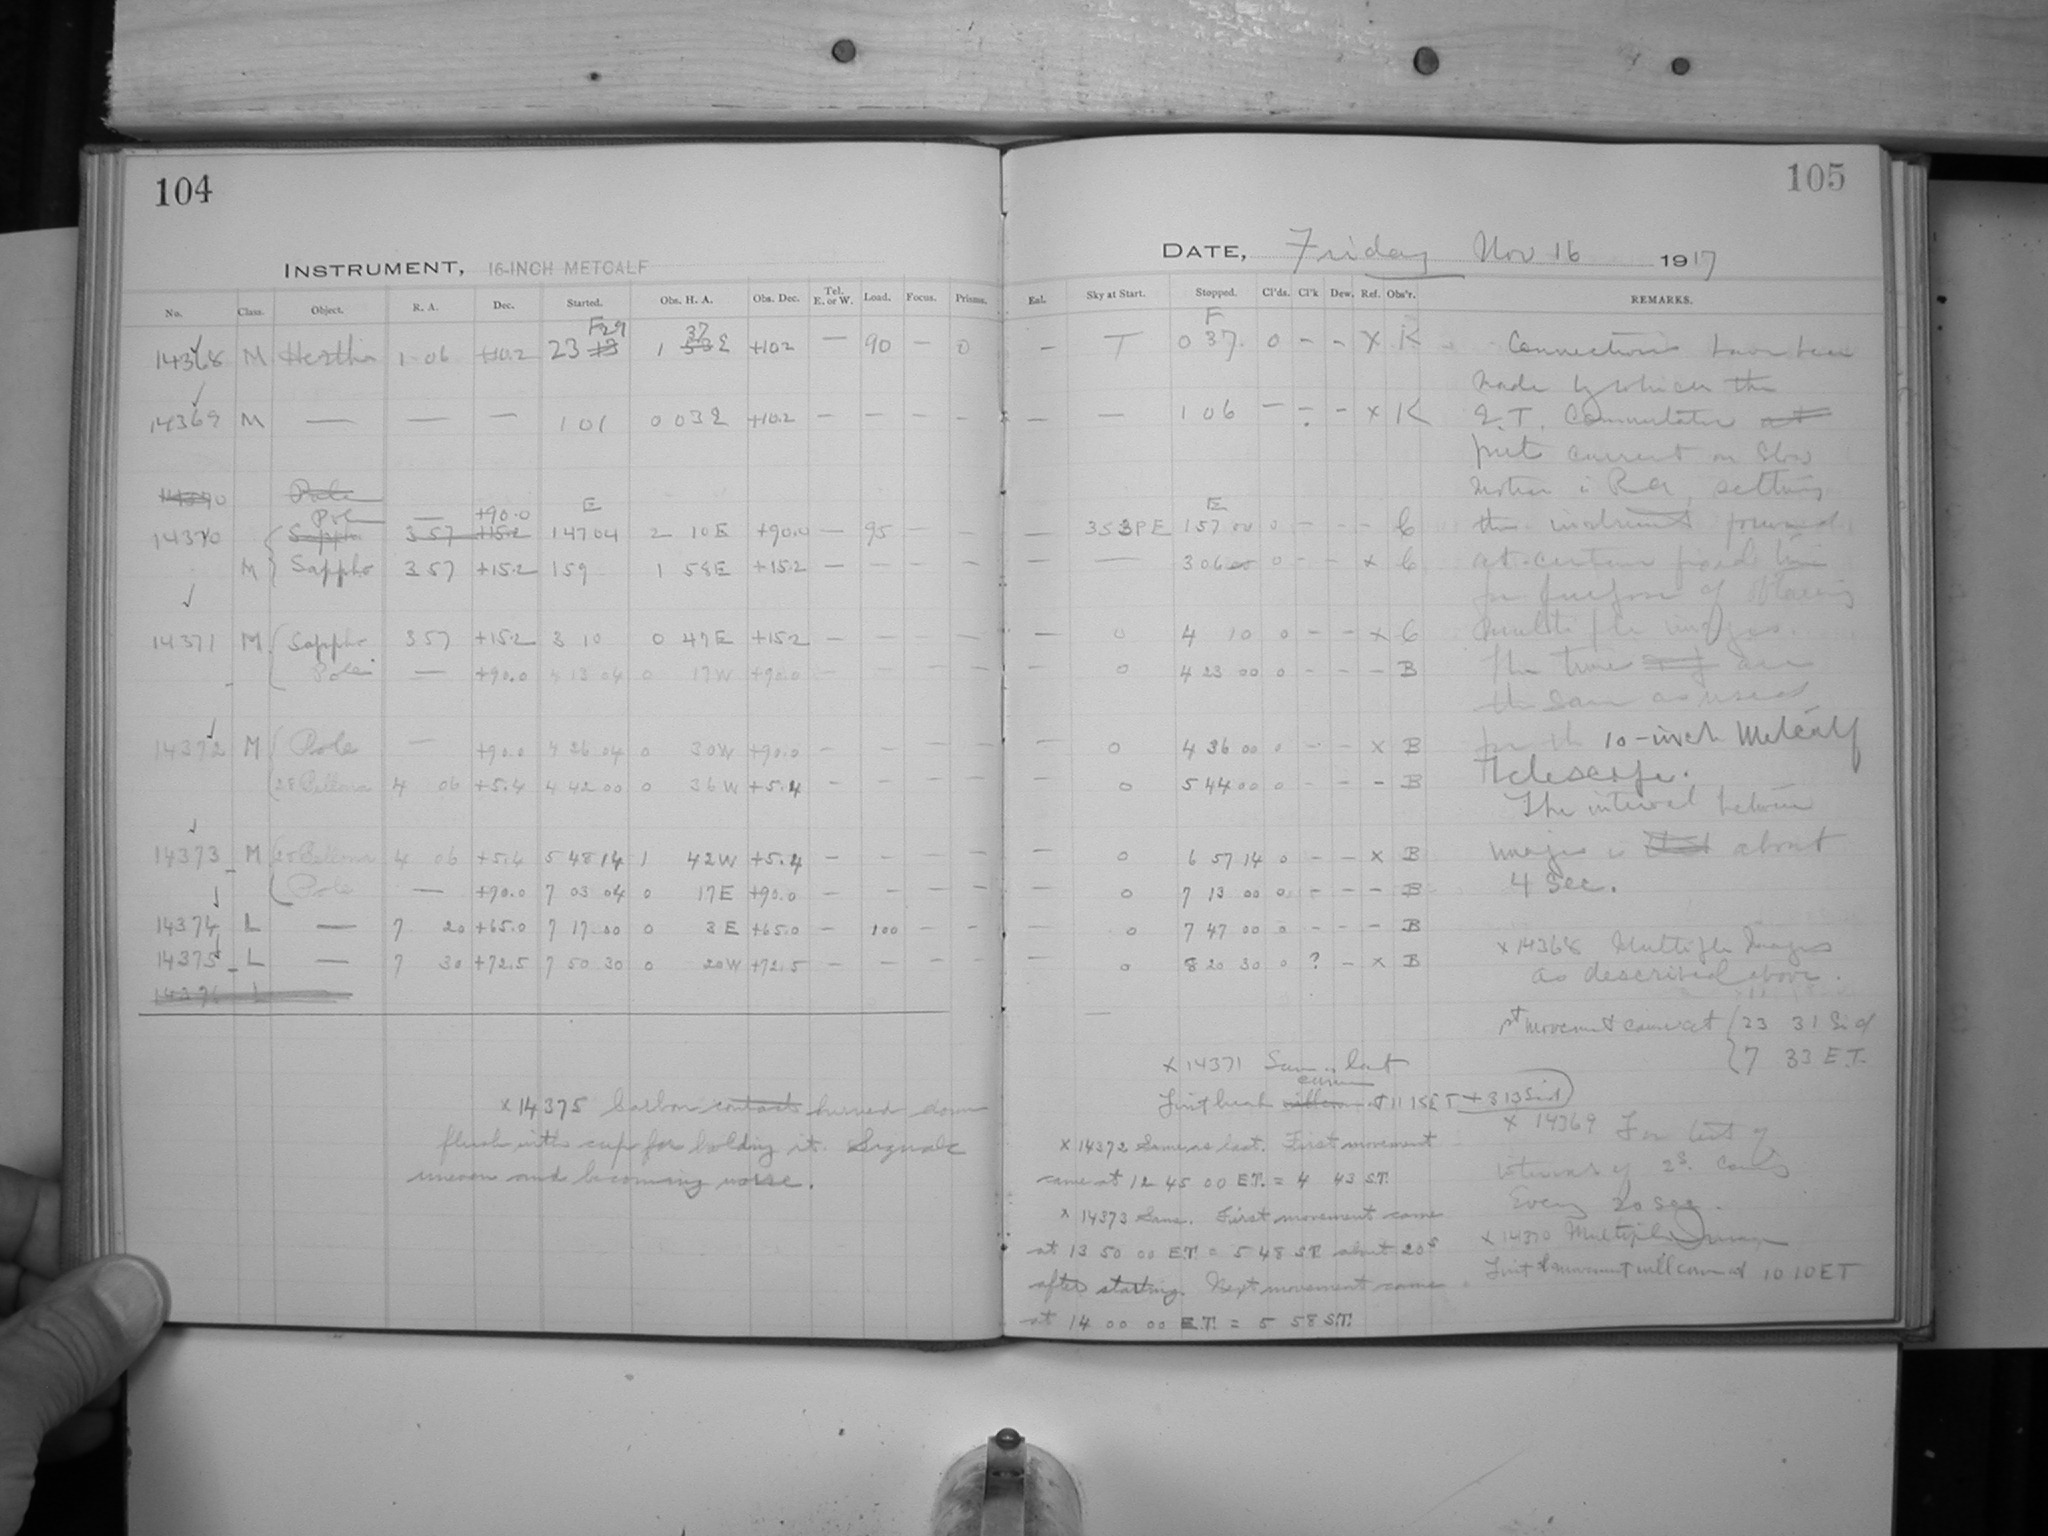 104
INSTRUMENT, 16-INCH METCALF
No. Class. Object. R. A. Dec. Started. Obs. H. A. Obs. Dec. Tel. E. or W. Load. Focus. Prisms.
F 29 37
14368 M Hertha 1 06 +10.2 23 13 1 53 E +10.2 — 90 — 0
14369 M — — — 1 01 0 03 E +10.2 — — — —
Pole
Pole — +90.0 E
14370 Sappho 3 57 +15.2 1 47 04 2 10 E +90.0 — 95 — —
M Sappho 3 57 +15.2 1 59 1 58 E +15.2 — — — —
14371 M Sappho 3 57 +15.2 3 10 0 47 E +15.2 — — — —
Pole — +90.0 4 13 04 0 17 W +90.0 — — — —
14372 M Pole — +90.0 4 26 04 0 30 W +90.0 — — — —
28 Bellona 4 06 +5.4 4 42 00 0 36 W +5.4 — — — —
14373 M 28 Bellona 4 06 +5.4 5 48 14 1 42 W +5.4 — — — —
Pole — +90.0 7 03 04 0 17 E +90.0 — — — —
14374 L — 7 20 +65.0 7 17 00 0 3 E +65.0 — 100 — —
14375 L — 7 30 +72.5 7 50 30 0 20 W +72.5 — — — —
14376 L —
x 14375 Carbon contacts burned down
flush with cup for holding it. Signals
uneven and becoming worse.
105
DATE, Friday Nov 16 1917
Eal. Sky at Start. Stopped. Cl'ds. Cl'k Dew. Ref. Obs'r. REMARKS.
F
— T 0 37. 0 – – x K
— — 1 06 – – – x K
E
— 353PE 1 57 00 0 – – – C
— — 3 06 00 0 – – x C
— 0 4 10 0 – – x C
— 0 4 23 00 0 – – – B
— 0 4 36 00 0 – – x B
— 0 5 44 00 0 – – – B
— 0 6 57 14 0 – – x B
— 0 7 13 00 0 – – – B
— 0 7 47 00 0 – – – B
— 0 8 20 30 0 ? – x B
—
Connections have been
made by which the
E.T. Commutator at
puts current on Slow
motion in R a, setting
the instrument forward
at certain fixed time
for purpose of obtaining
multiple images.
The times are
the same as used
for the 10-inch Metcalf
Telescope.
The interval between
images is that about
4 Sec.
x 14368 Multiple Images
as described above.
1st movement came at 23 31 Sid
7 33 E.T.
x 14369 For test of
intervals of 2s. Coming
Every 20 sec.
x 14370 Multiple Images
First movement will come at 10 10 ET
x 14371 Same as last
came
First break will come at 11 15 ET + 3 13 Sid
x 14372 Same as last. First movement
came at 12 45 00 E.T. = 4 43 S.T.
x 14373 Same. First movement came
at 13 50 00 E.T. = 5 48 S.T. about 20s
after starting. Next movement came
at 14 00 00 E.T. = 5 58 S.T.